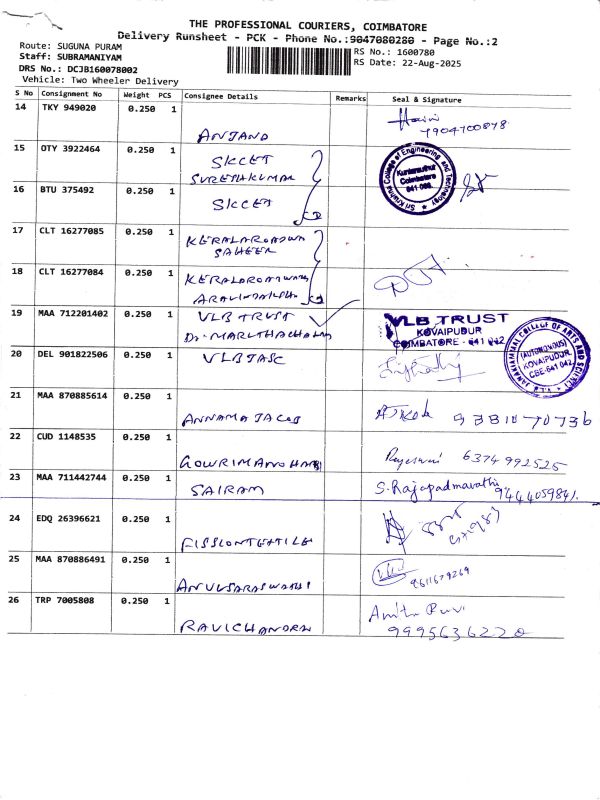 THE PROFESSIONAL COURIERS, COIMBATORE
Delivery Runsheet - PCK - Phone No.:9047080280 - Page No.:2
Route: SUGUNA PURAM
Staff: SUBRAMANIYAM
DRS No.: DCJB160078002
Vehicle: Two Wheeler Delivery
RS No.: 1600780
RS Date: 22-Aug-2025
S No Consignment No Weight PCS Consignee Details Remarks Seal & Signature
14 TKY 949020 0.250 1
ANJANA
7904700878
15 OTY 3922464 0.250 1 SKCET
SURESHKUMAR
Sri Krishna College of Engineering and Technology
Kuniamuthur
Coimbatore
641 008
16 BTU 375492 0.250 1 SKCET
17 CLT 16277085 0.250 1
SAHEER
18 CLT 16277084 0.250 1
19 MAA 712201402 0.250 1 VLB TRUST
VLB TRUST
KOVAIPUDUR
COIMBATORE - 641 042
20 DEL 901822506 0.250 1 VLBJASC
JANAKIAMMAL COLLEGE OF ARTS AND SCIENCE
(AUTONOMOUS)
KOVAIPUDUR,
CBE-641 042
21 MAA 870885614 0.250 1
ANNAMA JACOB
9381070736
22 CUD 1148535 0.250 1
GOWRIMANOHARI
Rajeswari 6374992525
23 MAA 711442744 0.250 1 SAIRAM
S. Rajapadmavathi
9444059841.
24 EDQ 26396621 0.250 1
FISSLONTEXTILE
25 MAA 870886491 0.250 1
26 TRP 7005808 0.250 1
RAVICHANDRAN
9995636220